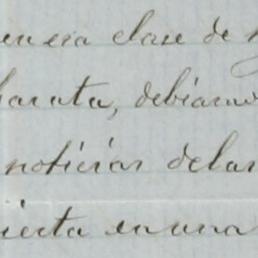 en esa clase de
barata, debiamos
noticias delas
ierta en una